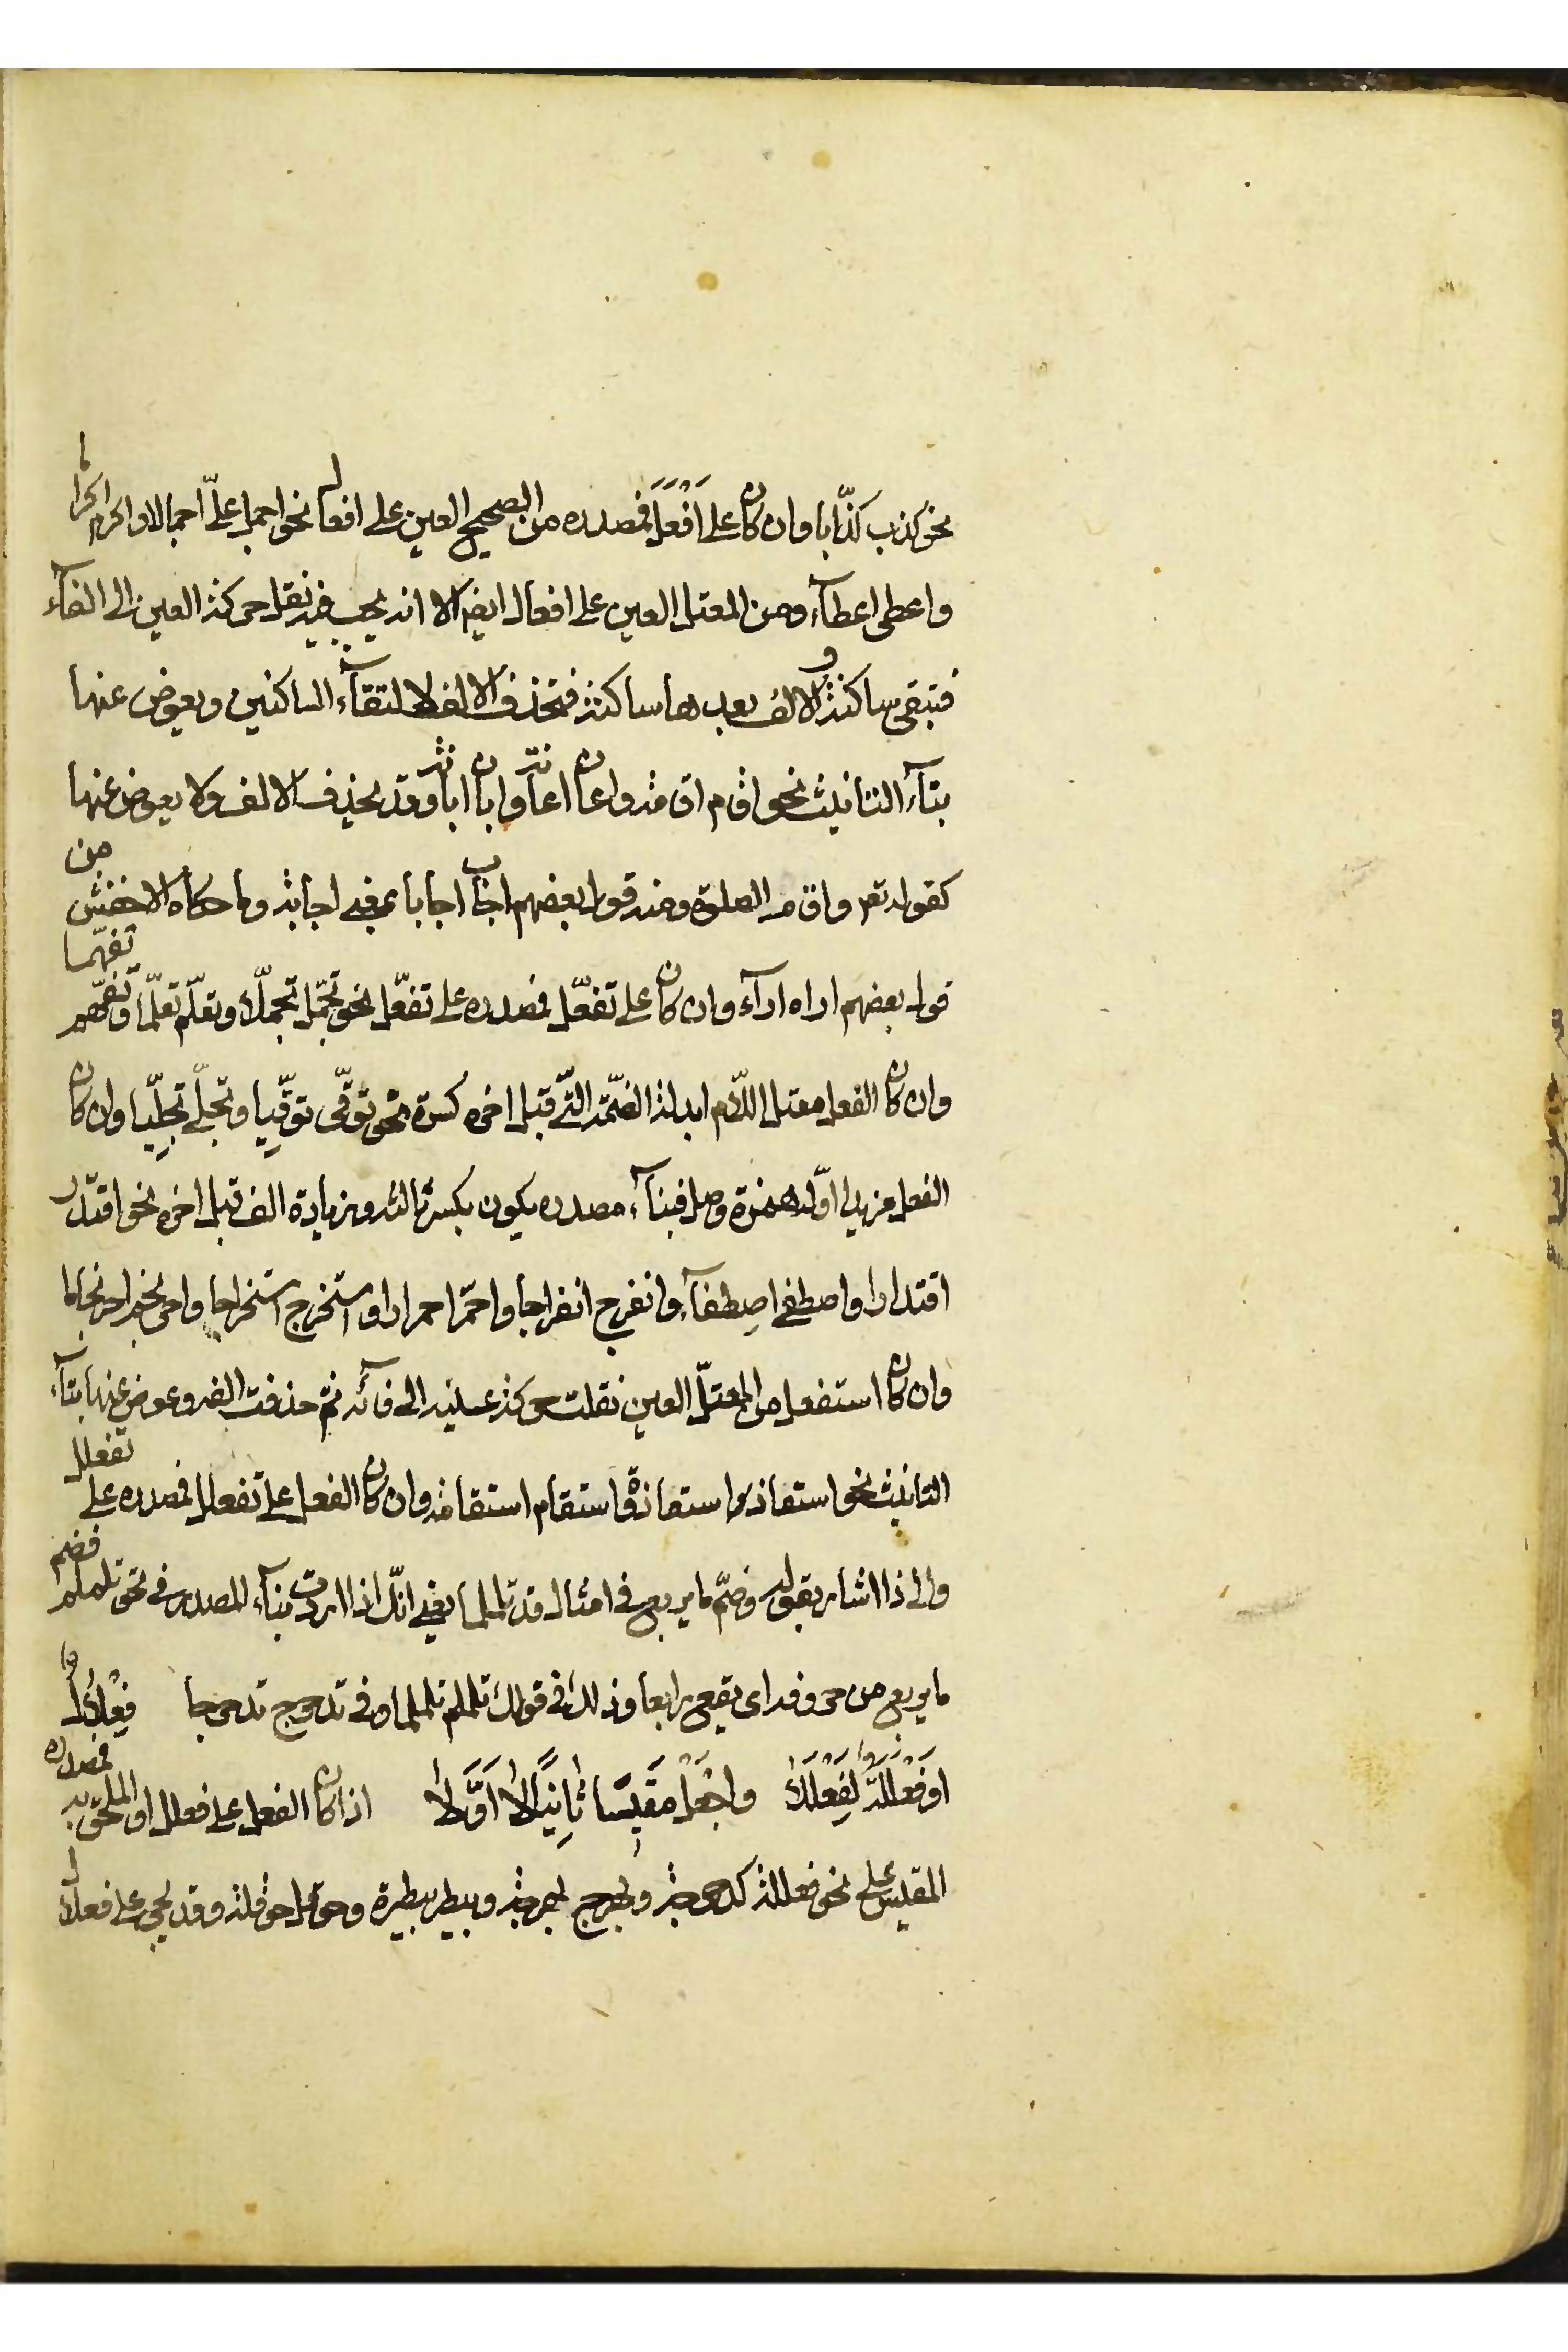 نحو كذب كذّابا وان كان على اَفْعَلَ فمصدره من الصحيح العين على افعال نحو اجمل على اجمالا واكرم اكراما
واعطى اعطآء ومن المعتل العين على افعال ايضا الا انه يجب فيه نقل حركة العين الى الفآء
فتبقى ساكنة والالف بعدها ساكنة فتحذف الالف لالتقآء الساكنين ويعوض عنها
بتآء التانيث نحو اقام اقامة واعان اعانة وابان ابانة وقد يحذف الالف ولا يعوض عنها
كقوله تعم واقام الصلوة ومنه قول بعضهم اجاب اجابا بمعنى اجابة وما حكاه الاخفش من
قول بعضهم اراه ارآء وان كان على تفعّل فمصدره على تفعّل نحو تجمّل تجمّلا وتعلّم تعلّما وتفهّم تفهّما
وان كان الفعل معتل اللّام ابدلة الضمّة الّتي قبل اخره كسرة نحو توقّى توقّيا وتجلّى تجلّيا وان كان
الفعل مزيدا اوّله همزة وصل فبنآء مصدره يكون بكسر ثالثه وبزيادة الف قبل اخره نحو اقتدر
اقتدارا واصطفى اصطفآء وانفرج انفراجا واحمّر احمرارا واستخرج استخراجا واحرنجم احرنجاما
وان كان استفعل من المعتلّ العين نقلت حركة عينه الى فآئه ثم حذفت الفه وعوض عنها بتآء
التانيث نحو استعاذ استعاذة واستقام استقامة وان كان الفعل على تفعلل فمصدره على تفعلل
والى ذا اشار بقوله وضمّ ما يربع في امثال قد تلملما يعني انّك اذا اردت بنآء المصدر في نحو تلملم فضم
ما يربع من حروفه اى يقع رابعا وذلك في قولك تلملم تلملما وفي تدحرج تدحرجا فِعْلَالٌ
اَوْ فَعْلَلَةٌ لِفَعْلَلَا واجْعَلْ مَقِيْسًا ثَانِيًا لَا اَوَّلَا اذا كان الفعل على فعلل او الملحق به فمصدره
المقيس على نحو فعللة كدحرجة وبهرج بهرجة وبيطر بيطرة وحوقل حوقلة وقد يجئ على فعلال